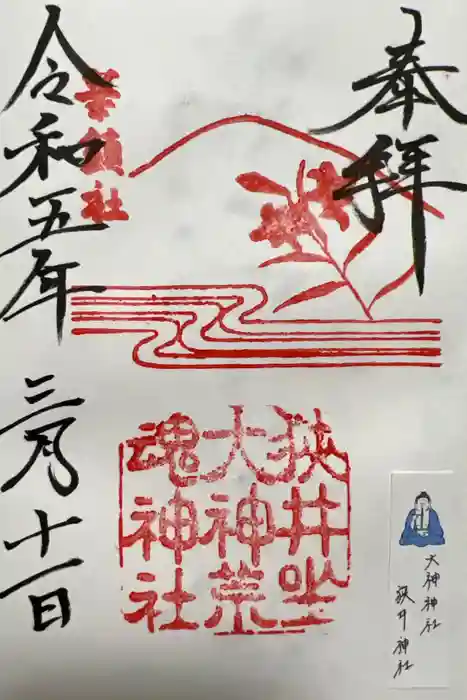 奉拝
狭井坐
大神荒
魂神社
華鎮社
令和五年三月十一日
大神神社
狭井神社